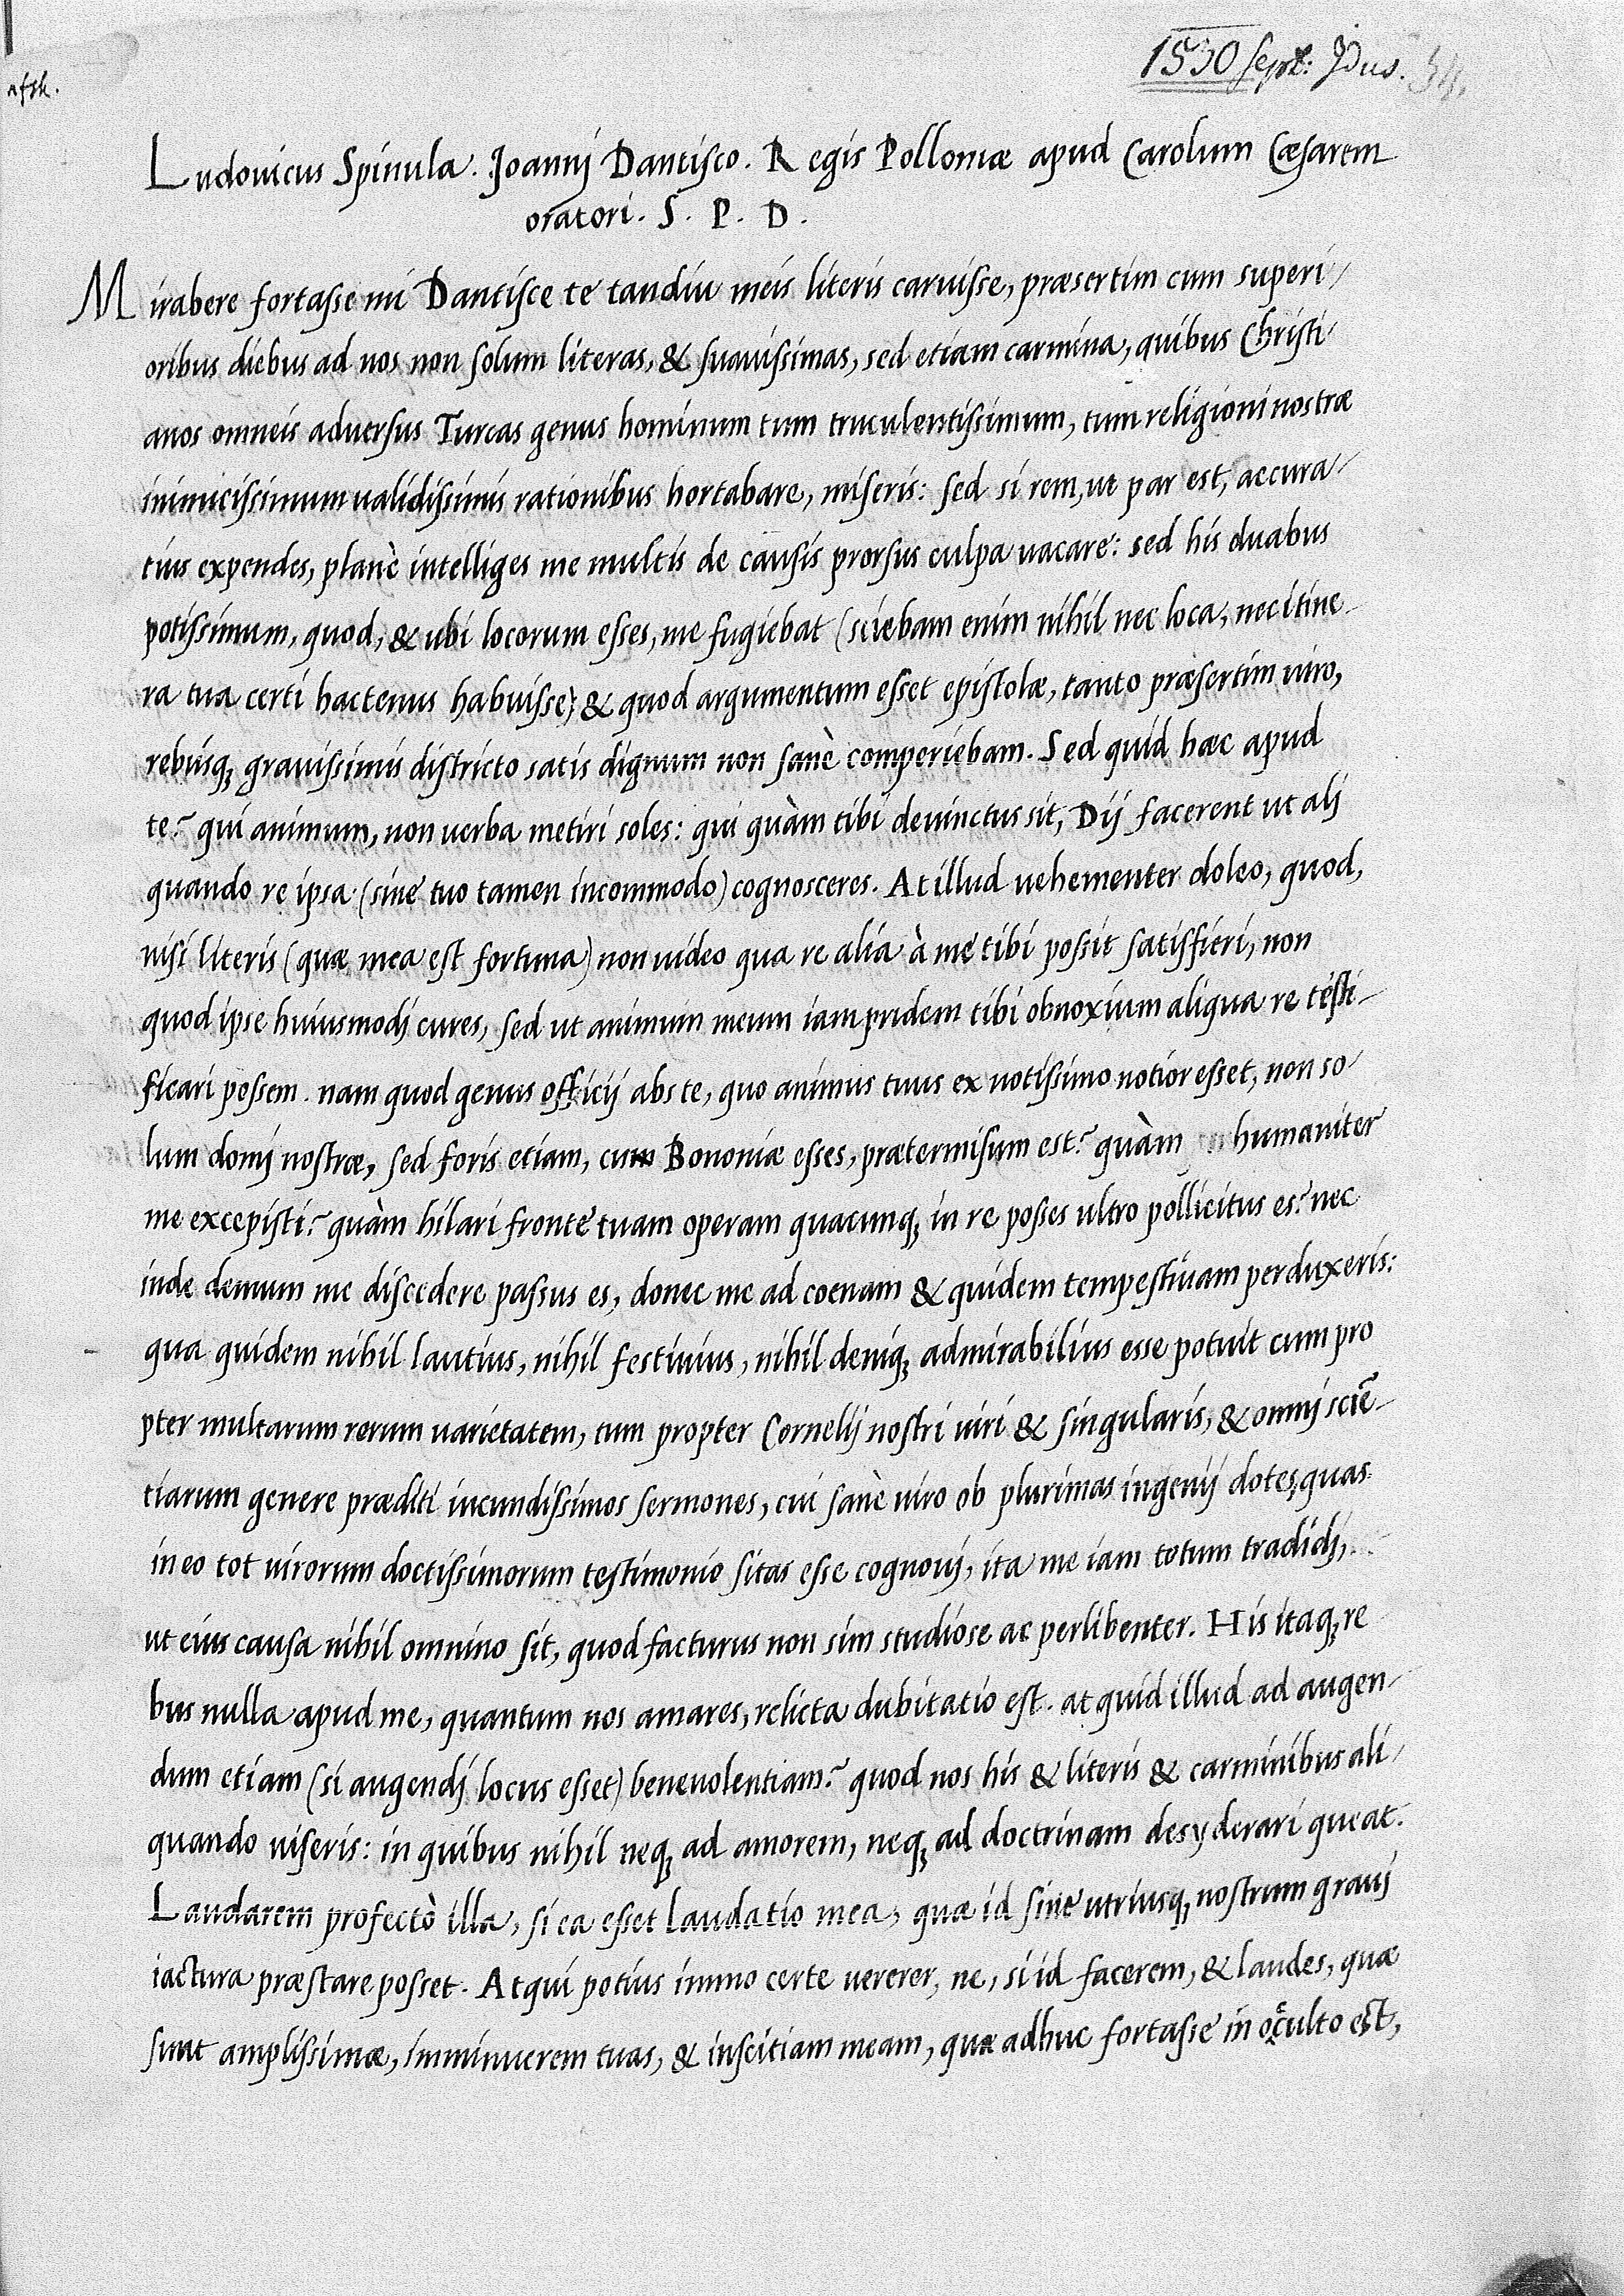 1530 sept: Idus. 34.
Ludovicus Spinula. Joannj Dantisco. Regis Polloniæ apud Carolum Cæsarem
oratori. S. P. D.
Mirabere fortasse mi Dantisce te tandiu meis literis caruisse, præsertim cum superi-
oribus diebus ad nos non solum literas, & suauissimas, sed etiam carmina, quibus Christi-
anos omneis aduersus Turcas genus hominum tum truculentissimum, tum religioni nostræ
inimicissimum ualidissimis rationibus hortabare, miseris: sed si rem, ut par est, accura-
tius expendes, planè intelliges me multis de causis prorsus culpa uacare: sed his duabus
potissimum, quod, & ubi locorum esses, me fugiebat (sciebam enim nihil nec loca, nec itine-
ra tua certi hactenus habuisse) & quod argumentum esset epistolæ, tanto præsertim uiro,
rebusq; grauissimis districto satis dignum non sanè comperiebam. Sed quid hæc apud
te? qui animum, non uerba metiri soles: qui quàm tibi deuinctus sit, Dij facerent ut ali
quando re ipsa (sine tuo tamen incommodo) cognosceres. At illud uehementer doleo, quod,
nisi literis (quæ mea est fortuna) non uideo qua re alia à me tibi possit satisfieri, non
quod ipse huiusmodj cures, sed ut animum meum iampridem tibi obnoxium aliqua re testi-
ficari possem. nam quod genus officij abs te, quo animus tuus ex notissimo notior esset, non so-
lum domj nostræ, sed foris etiam, cum Bononiæ esses, prætermisum est? quàm humaniter
me excepisti? quàm hilari fronte tuam operam quacunq; in re posses ultro pollicitus es? nec
inde demum me discedere passus es, donec me ad coenam & quidem tempestiuam perduxeris:
qua quidem nihil lautius, nihil festiuius, nihil deniq; admirabilius esse potuit cum pro
pter multarum rerum uarietatem, tum propter Cornelij nostri uiri & singularis, & omnj sciē-
tiarum genere præditi iucundissimos sermones, cui sanè uiro ob plurimas ingenij dotes, quas
in eo tot uirorum doctissimorum testimonio sitas esse cognouj, ita me iam totum tradidj,
ut eius causa nihil omnino sit, quod facturus non sim studiose ac perlibenter. His itaq; re
bus nulla apud me, quantum nos amares, relicta dubitatio est. at quid illud ad augen-
dum etiam (si augendj locus esset) beneuolentiam? quod nos his & literis & carminibus ali-
quando uiseris: in quibus nihil neq; ad amorem, neq; ad doctrinam desyderari queat.
Laudarem profectò illa, si ea esset laudatio mea, quæ id sine utriusq; nostrum grauj
iactura præstare posset. Atqui potius immo certe uererer, ne, si id facerem, & laudes, quæ
sunt amplissimæ, imminuerem tuas, & inscitiam meam, quæ adhuc fortasse in occulto est,